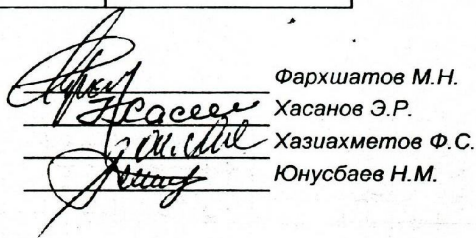 Фархшатов М.Н.
Хасанов Э.Р.
Хазиахметов Ф.С.
Юнусбаев Н.М.